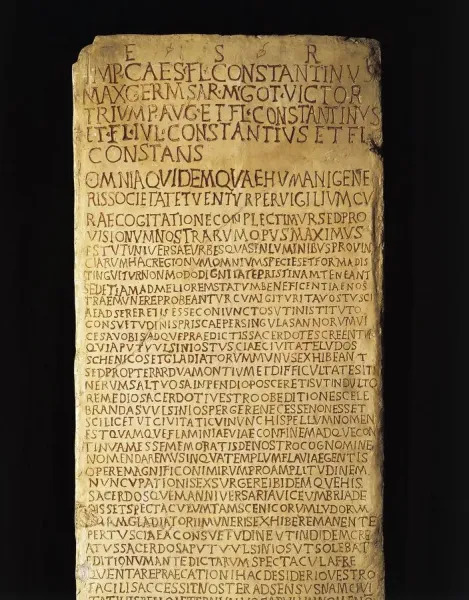 E S R
IMP·CAES·FL·CONSTANTINV
MAX·GERM·SAR·M·GOT·VICTOR
TRIVMP·AVG·ET·FL·CONSTANTINVS
ET·FL·IVL·CONSTANTIVS ET FL
CONSTANS
OMNIA QVIDEM QVAE HVMANI GENE
RIS SOCIETATE TVENTVR PERVIGILIVM CV
RAE COGITATIONE CONPLECTIMVR SED PRO
VISIONVM NOSTRARVM OPVS MAXIMVS
EST VT VNIVERSAE VRBES QVAS IN LVMINIBVS PROVIN
CIARVM HAC REGIONVM OMNIVM SPECIES ET FORMA DIS
TINGVITVR NON MODO DIGNITATE PRISTINAM TENEANT
SED ETIAM AD MELIOREM STATVM BENEFICENTIAE NOS
TRAE MVNERE PROBEANTVR CVM IGITVR ITA VOS TVSCI
AE ADSERERETIS ESSE CONIVNCTOS VT INSTITVTO
CONSVETVDINIS PRISCAE PER SINGVLAS ANNORVM VI
CES A VOBIS ADQVE PRAEDICTIS SACERDOTES CREENTVR
QVI APVT VVLSINIOS TVSCIAE CIVITATE LVDOS
SCHENICOS ET GLADIATORVM MVNVS EXHIBEANT
SED PROPTER ARDVA MONTIVM ET DIFFICVLTATES ITI
NERVM SALTVOSA INPENDIO POSCERETIS VT INDVLTO
REMEDIO SACERDOTI VESTRO OB EDITIONES CELE
BRANDAS VVLSINIOS PERGERE NECESSE NON ESSET
SCILICET VT CIVITATI CVI NVNC HISPELLVM NOMEN
EST QVAMQVE FLAMINIAE VIAE CONFINEM ADQVE CON
TINVAM ESSE MEMORATIS DE NOSTRO COGNOMINE
NOMEN DAREMVS IN QVA TEMPLVM FLAVIAE GENTIS
OPERE MAGNIFICO NIMIRVM PRO AMPLITVDINEM
NVNCVPATIONIS EXSVRGERE IBIDEMQVE HIS
SACERDOS QVEM ANNIVERSARIA VICE VMBRIA DE
DISSET SPECTACVLVM TAM SCENICORVM LVDORVM
QVAM GLADIATORII MVNERIS EXHIBERE MANENTE
PER TVSCIA EA CONSVETVDINE VT INDIDEM CRE
ATVS SACERDOS APVT VVLSINIOS VT SOLEBAT
EDITIONVM ANTEDICTARVM SPECTACVLA FRE
QVENTARE PRAECATIONI HAC DESIDERIO VESTRO
FACILIS ACCESSIT NOSTER ADSENSVS NAM CIVI